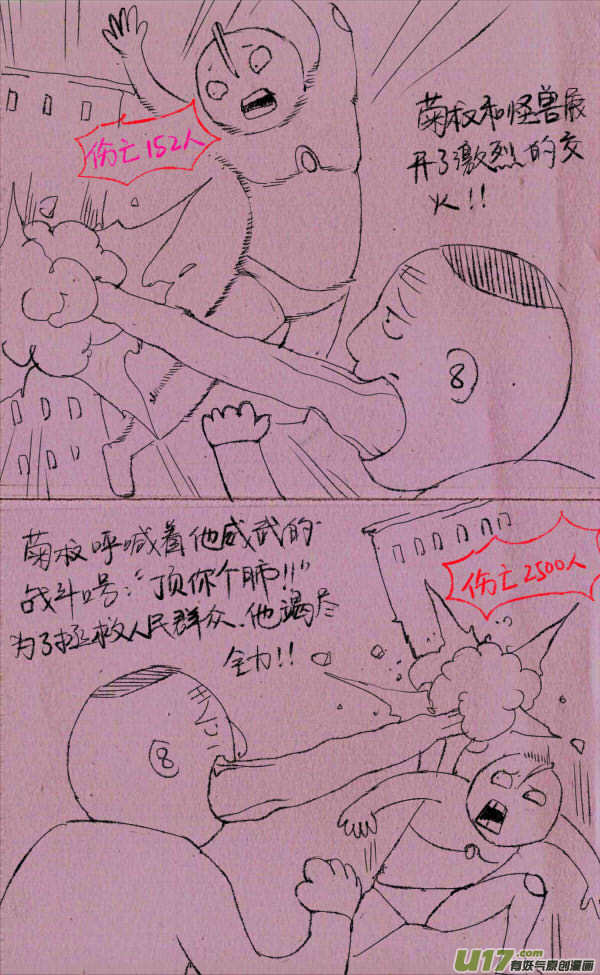 伤亡152人
菊叔和怪兽展
开了激烈的交
火!!
菊叔呼喊着他威武的
战斗口号:"顶你个肺!!"
为了拯救人民群众.他竭尽
全力!!
伤亡2500人
8
8
U17.com
有妖气原创漫画